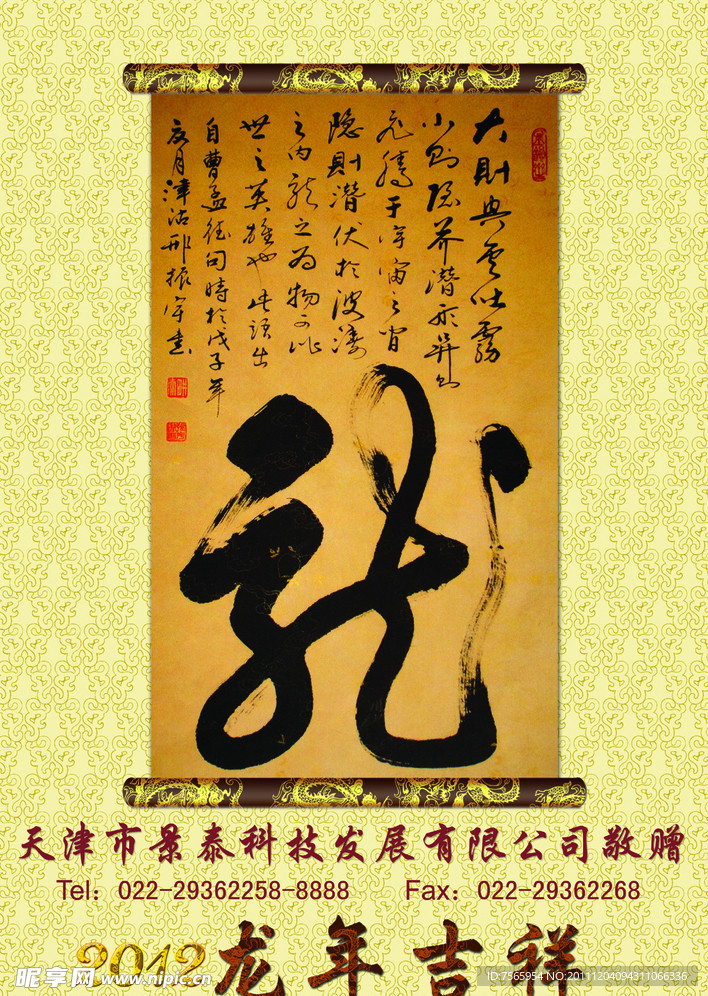 大則興雲吐霧
小则隐芥潜形升则
飛騰于宇宙之间
隐則潜伏於波濤
之内龙之为物可比
世之英雄也此語出
自曹孟德句時於戊子年
夏月津沽邢振宇书
龍
天津市景泰科技发展有限公司敬赠
Tel：022-29362258-8888 Fax：022-29362268
2012龙年吉祥
昵享网 www.nipic.cn
ID:7565954 NO:20111204094311066336